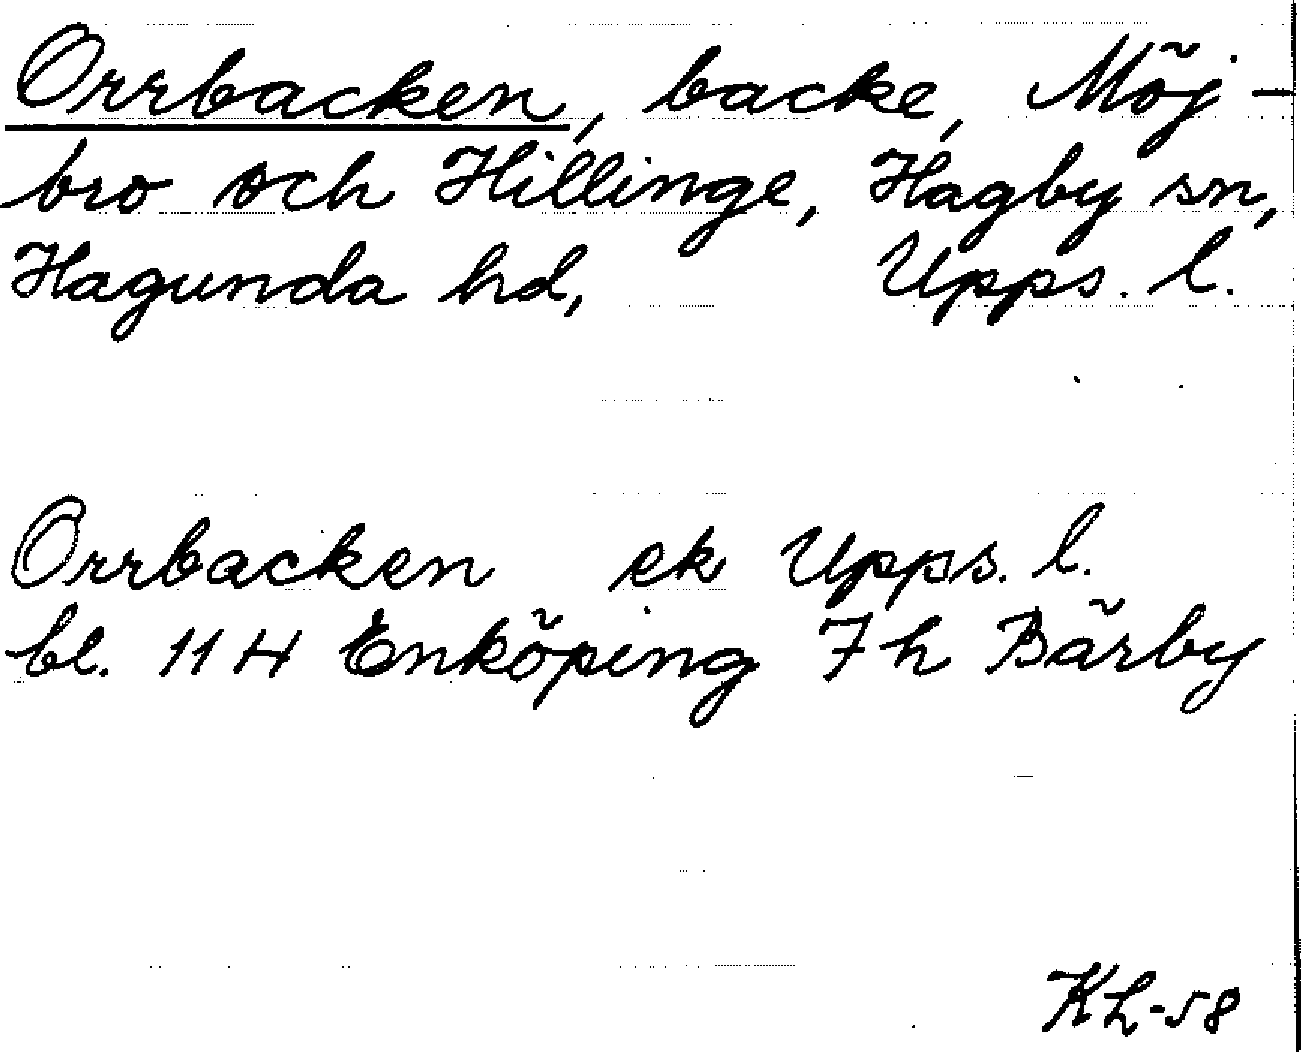 Orrbacken, backe, Möj-
bro och Hillinge, Hagby sn,
Hagunda hd, Upps. l.
Orrbacken ek Upps. l.
bl. 11 H Enköping 7 h Bärby
KL-58